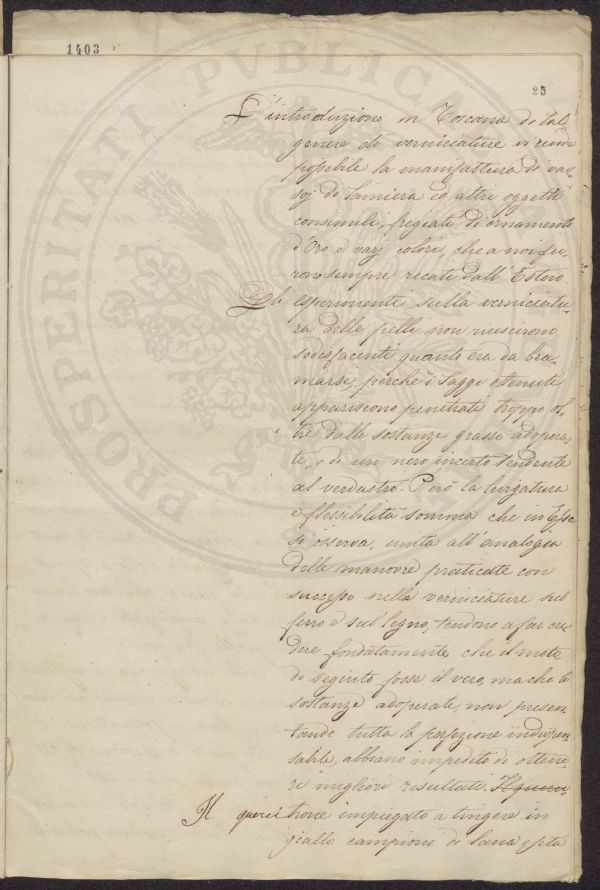 1403
PROSPERITATI PUBLICAE
25
L'introduzione in Toscana di tal
genere di verniciature in rend
possibile la manifattura di vas-
soj di Lamiera ed altri oggetti
consimili, fregiati di ornamenti
d'Oro e varj colori, che a noi fu-
rono sempre recati dall'Estero
Gli esperimenti sulla verniciatu-
ra delle pelli non riuscirono
sodisfacenti quanto era da bra-
marsi, perchè i Saggi ottenuti
apparivono penetrati troppo ol-
tre dalle sostanze grasse adopra-
te, e di un nero incerto tendente
al verdastro. Però la levigatura
e flessibilità somma che in Esse
si osserva, unita all'analogia
delle manovre praticate con
successo nelle verniciature sul
ferro e sul legno, tendono a far cre-
dere fondatamente che il meto-
do seguito fosse il vero, ma che le
sostanze adoperate, non presen-
tando tutta la perfezione indispen-
sabile, abbiano impedito di ottene-
re migliori resultati. Il querci-
Il querci trone impiegato a tingere in
giallo campioni di lana e seta